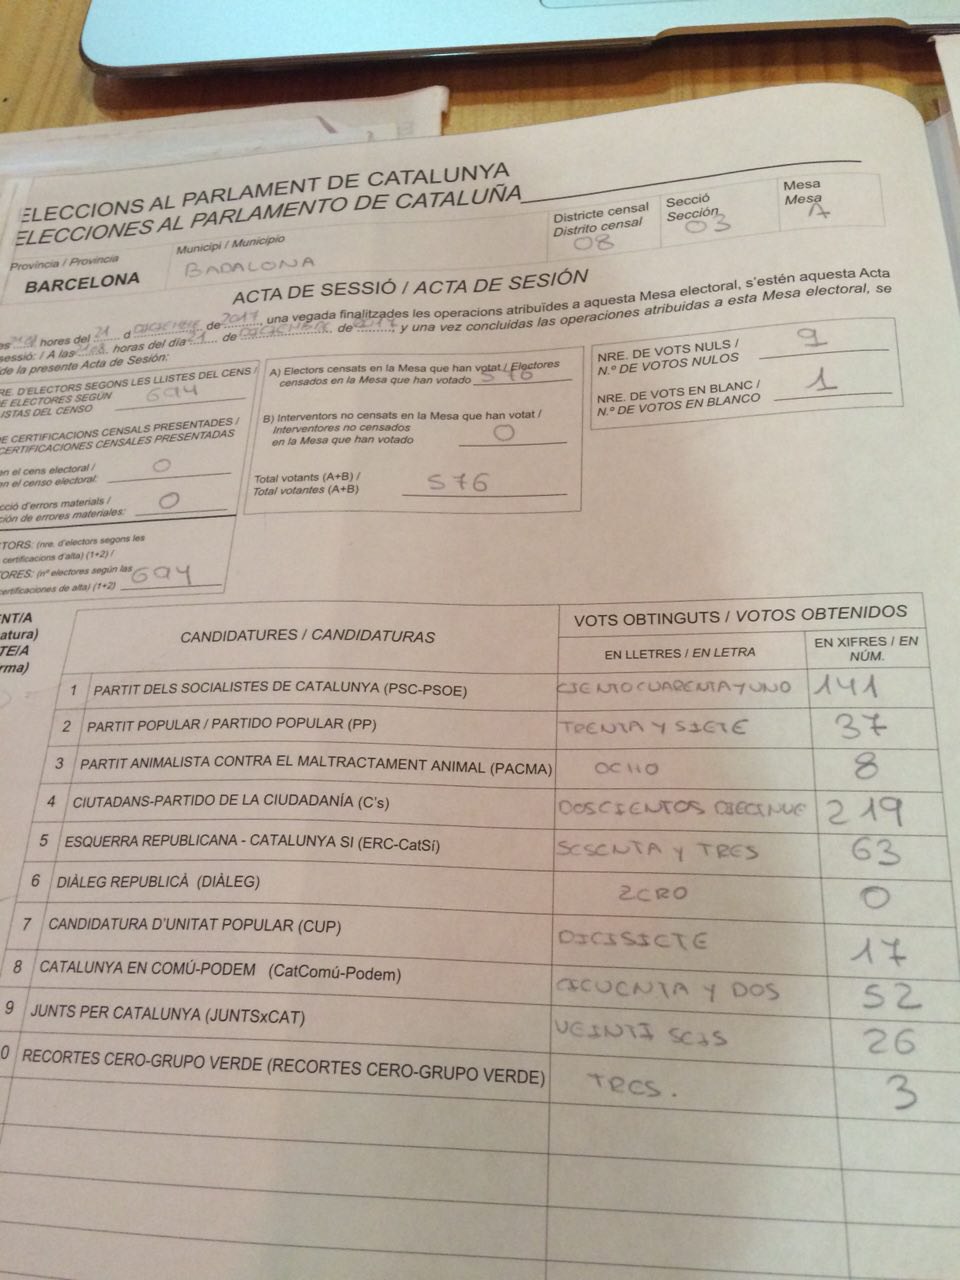 ELECCIONS AL PARLAMENT DE CATALUNYA
ELECCIONES AL PARLAMENTO DE CATALUÑA
Província / Provincia
BARCELONA
Municipi / Municipio
BADALONA
Districte censal
Distrito censal
08
Secció
Sección
03
Mesa
Mesa
A
ACTA DE SESSIÓ / ACTA DE SESIÓN
hores del 21 d DICIEMBRE de 2017, una vegada finalitzades les operacions atribuïdes a aquesta Mesa electoral, s'estén aquesta Acta
sessió: / A las horas del día 21 de DICIEMBRE de 2017 y una vez concluidas las operaciones atribuidas a esta Mesa electoral, se
de la presente Acta de Sesión:
RE. D'ELECTORS SEGONS LES LLISTES DEL CENS /
E ELECTORES SEGÚN
ISTAS DEL CENSO 694
E CERTIFICACIONS CENSALS PRESENTADES /
CERTIFICACIONES CENSALES PRESENTADAS
en el cens electoral /
en el censo electoral: 0
cció d'errors materials /
ción de errores materiales: 0
TORS: (nre. d'electors segons les
certificacions d'alta) (1+2) /
ORES: (nº electores según las
certificaciones de alta) (1+2) 694
A) Electors censats en la Mesa que han votat / Electores
censados en la Mesa que han votado 576
B) Interventors no censats en la Mesa que han votat /
Interventores no censados
en la Mesa que han votado 0
Total votants (A+B) /
Total votantes (A+B) 576
NRE. DE VOTS NULS /
N.º DE VOTOS NULOS 9
NRE. DE VOTS EN BLANC /
N.º DE VOTOS EN BLANCO 1
NT/A
atura)
TE/A
rma)
CANDIDATURES / CANDIDATURAS
VOTS OBTINGUTS / VOTOS OBTENIDOS
EN LLETRES / EN LETRA
EN XIFRES / EN
NÚM.
1 PARTIT DELS SOCIALISTES DE CATALUNYA (PSC-PSOE) CIENTOCUARENTAYUNO 141
2 PARTIT POPULAR / PARTIDO POPULAR (PP) TRENTA Y SIETE 37
3 PARTIT ANIMALISTA CONTRA EL MALTRACTAMENT ANIMAL (PACMA) OCHO 8
4 CIUTADANS-PARTIDO DE LA CIUDADANÍA (C's) DOSCIENTOS DIECINUE 219
5 ESQUERRA REPUBLICANA - CATALUNYA SI (ERC-CatSí) SESENTA Y TRES 63
6 DIÀLEG REPUBLICÀ (DIÀLEG) ZERO 0
7 CANDIDATURA D'UNITAT POPULAR (CUP) DICISIETE 17
8 CATALUNYA EN COMÚ-PODEM (CatComú-Podem) CICUENTA Y DOS 52
9 JUNTS PER CATALUNYA (JUNTSxCAT) VEINTI SEIS 26
0 RECORTES CERO-GRUPO VERDE (RECORTES CERO-GRUPO VERDE) TRES. 3